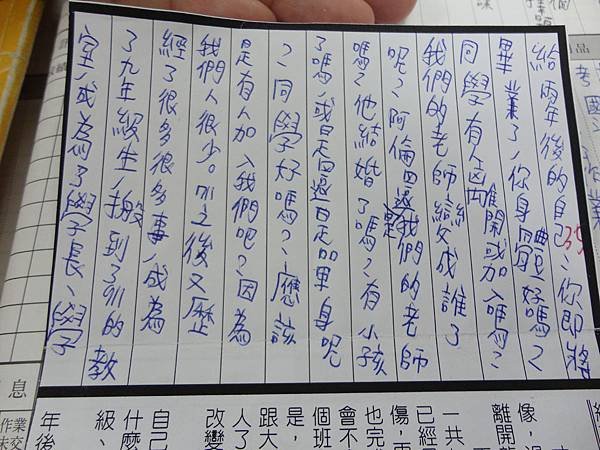 給兩年後的自己：你即將
35
畢業了，你身體好嗎？
同學有人離開或加入嗎？
我們的老師變成誰了
呢？阿倫還是我們的老師
嗎？他結婚了嗎？有小孩
了嗎，或是還是單身呢
？同學好嗎？應該
是有人加入我們吧？因為
我們人很少。之後又歷
經了很多很多事，成為
了九年級生，搬到了911的教
室，成為了學長，學子
像，
離開
一共
已經
傷，
也完
會不
個班
是，
跟大
人了
改變
自己
什麼
級、
年後
息
作業
未交